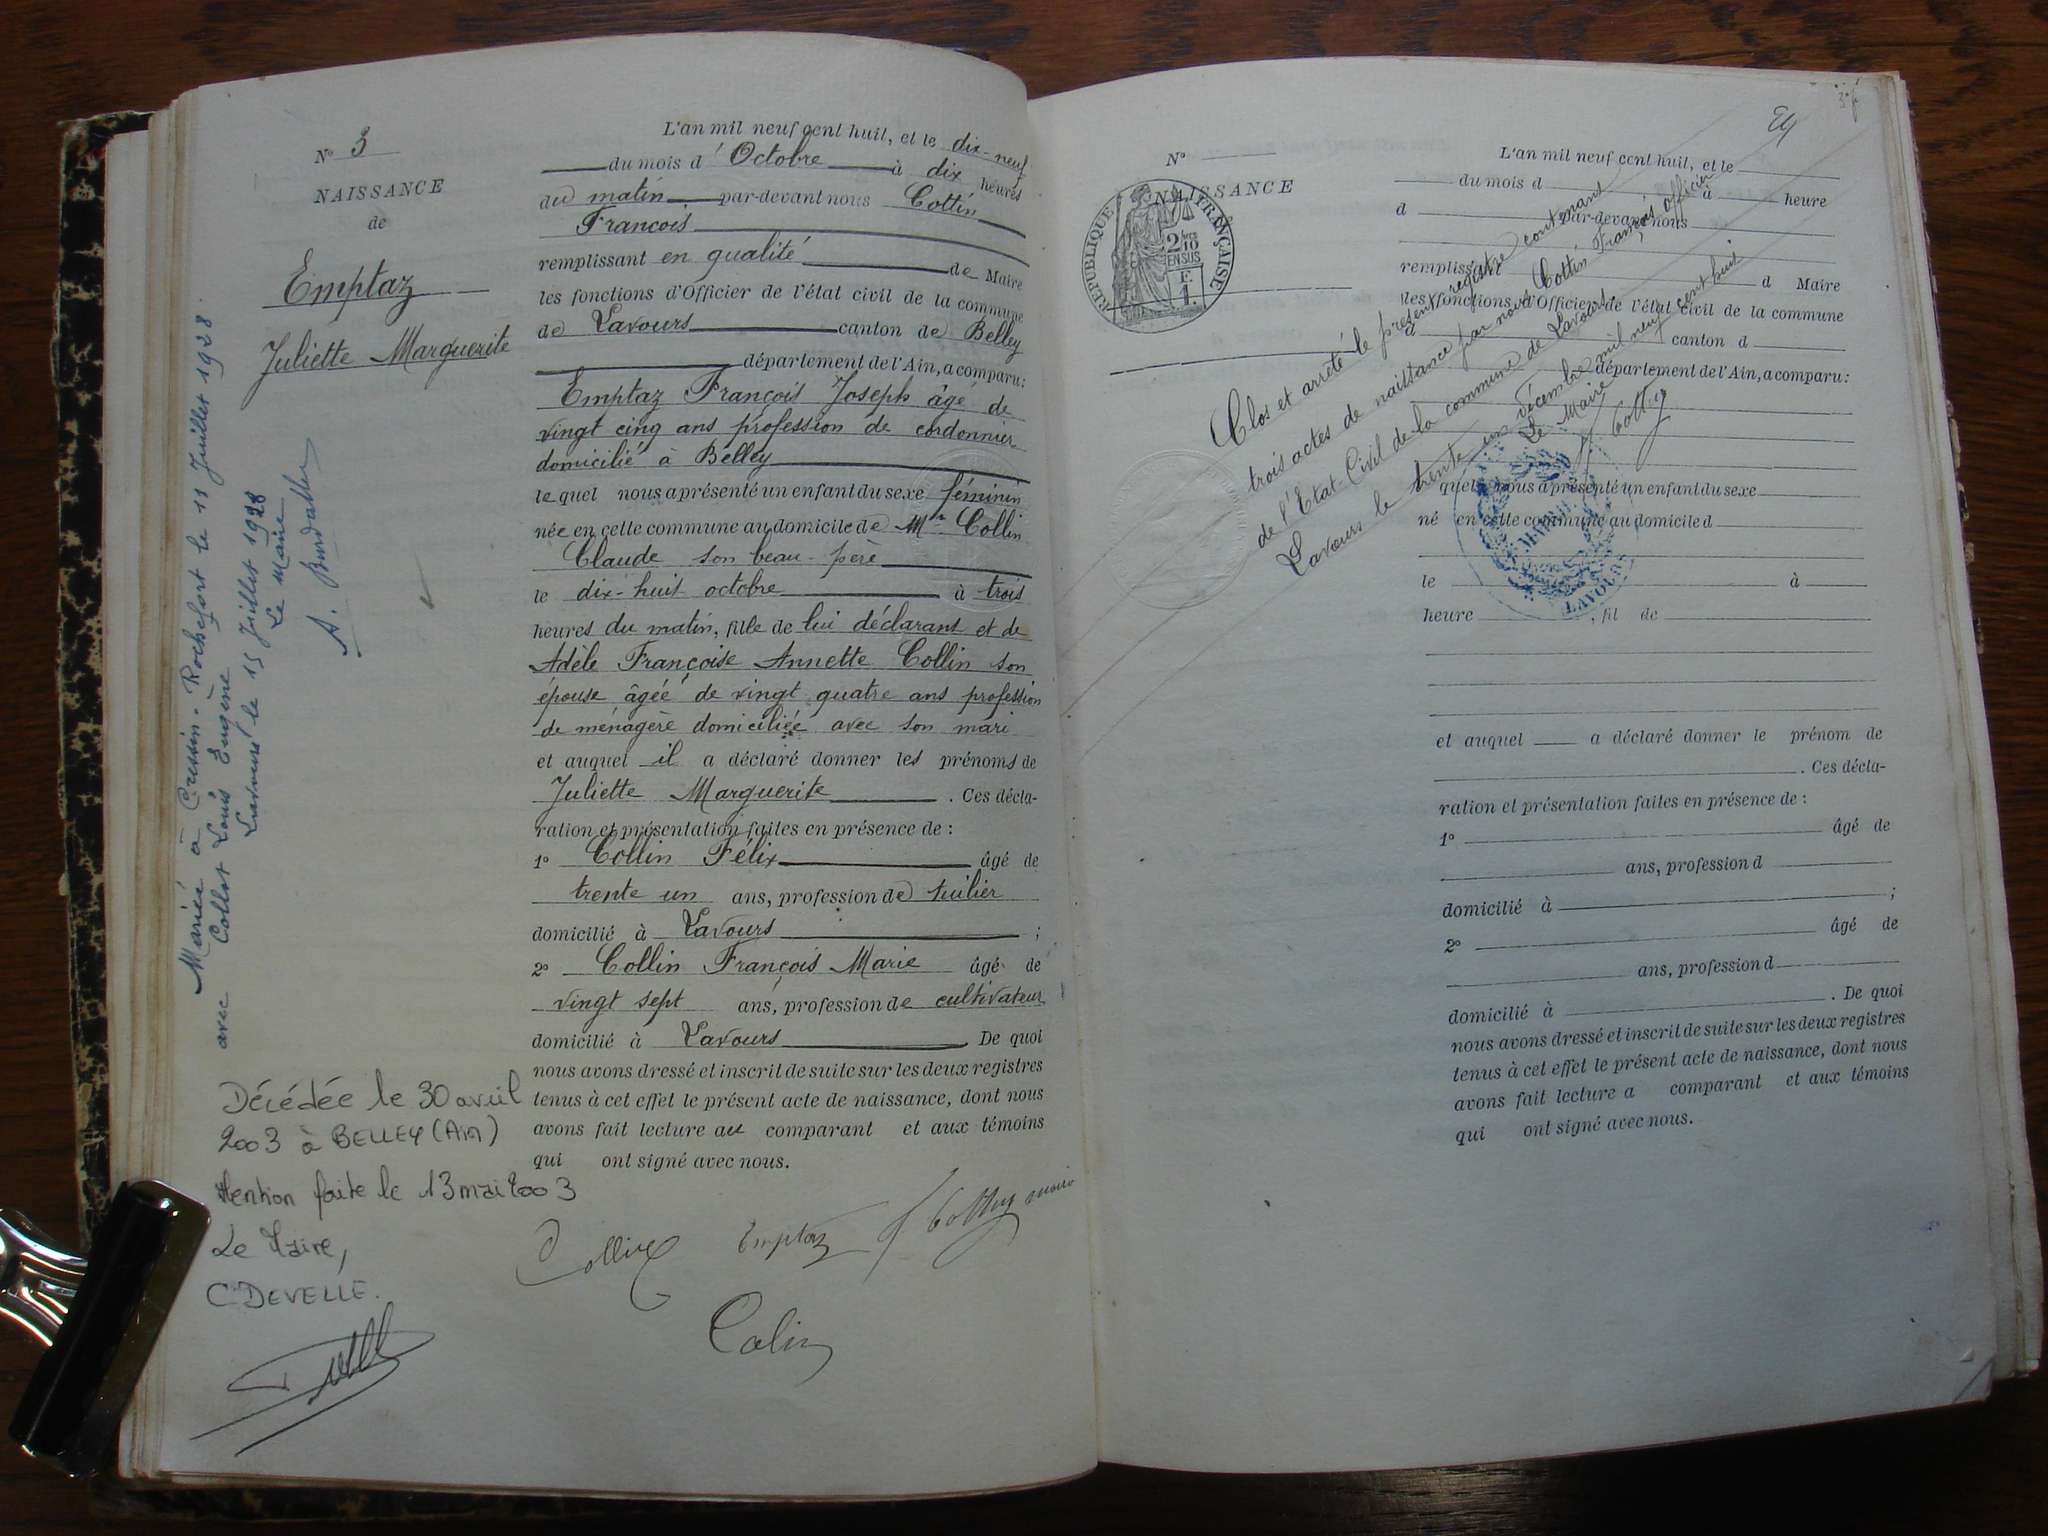 N° 3
NAISSANCE
de
Emptaz
Juliette Marguerite
Mariée à Cressin-Rochefort le 11 Juillet 1928.
avec Collet Louis Eugène
Lavours le 15 Juillet 1928
Le Maire
Décédée le 30 avril
2003 à BELLEY (AIN)
Mention faite le 13 mai 2003
Le Maire,
C DEVELLE.
L'an mil neuf cent huit, et le dix-neuf
du mois d' Octobre à dix heures
du matin par-devant nous Cottin
François
remplissant en qualité de Maire
les fonctions d'Officier de l'état civil de la commune
de Lavours canton de Belley
département de l'Ain, a comparu:
Emptaz François Joseph âgé de
vingt cinq ans profession de cordonnier
domicilié à Belley
le quel nous a présenté un enfant du sexe féminin
née en cette commune au domicile de Mr Collin
Claude son beau-père
le dix-huit octobre à trois
heures du matin, fille de lui déclarant et de
Adèle Françoise Annette Collin son
épouse âgée de vingt quatre ans profession
de ménagère domiciliée avec son mari
et auquel il a déclaré donner les prénoms de
Juliette Marguerite . Ces décla-
ration et présentation faites en présence de :
1° Collin Félix âgé de
trente un ans, profession de tuilier
domicilié à Lavours ;
2° Collin François Marie âgé de
vingt sept ans, profession de cultivateur
domicilié à Lavours De quoi
nous avons dressé et inscrit de suite sur les deux registres
tenus à cet effet le présent acte de naissance, dont nous
avons fait lecture au comparant et aux témoins
qui ont signé avec nous.
Collin Emptaz f Cottin maire
Colin
N°
NAISSANCE
RÉPUBLIQUE FRANÇAISE
2/10 EN SUS
L'an mil neuf cent huit, et le
du mois d à heure
d par-devant nous
remplissant d Maire
les fonctions d'Officier de l'état civil de la commune
d canton d
département de l'Ain, a comparu:
Clos et arrêté le présent registre contenant
trois actes de naissance par nous Cottin François officier
de l'Etat Civil de la commune de Lavours.
Lavours le trente un décembre mil neuf cent huit
Le Maire
f Cottin
MAIRIE
LAVOURS
quel nous a présenté un enfant du sexe
né en cette commune au domicile d
le à
heure , fil de
et auquel a déclaré donner le prénom de
. Ces décla-
ration et présentation faites en présence de :
1° âgé de
ans, profession d
domicilié à ;
2° âgé de
ans, profession d
domicilié à . De quoi
nous avons dressé et inscrit de suite sur les deux registres
tenus à cet effet le présent acte de naissance, dont nous
avons fait lecture a comparant et aux témoins
qui ont signé avec nous.